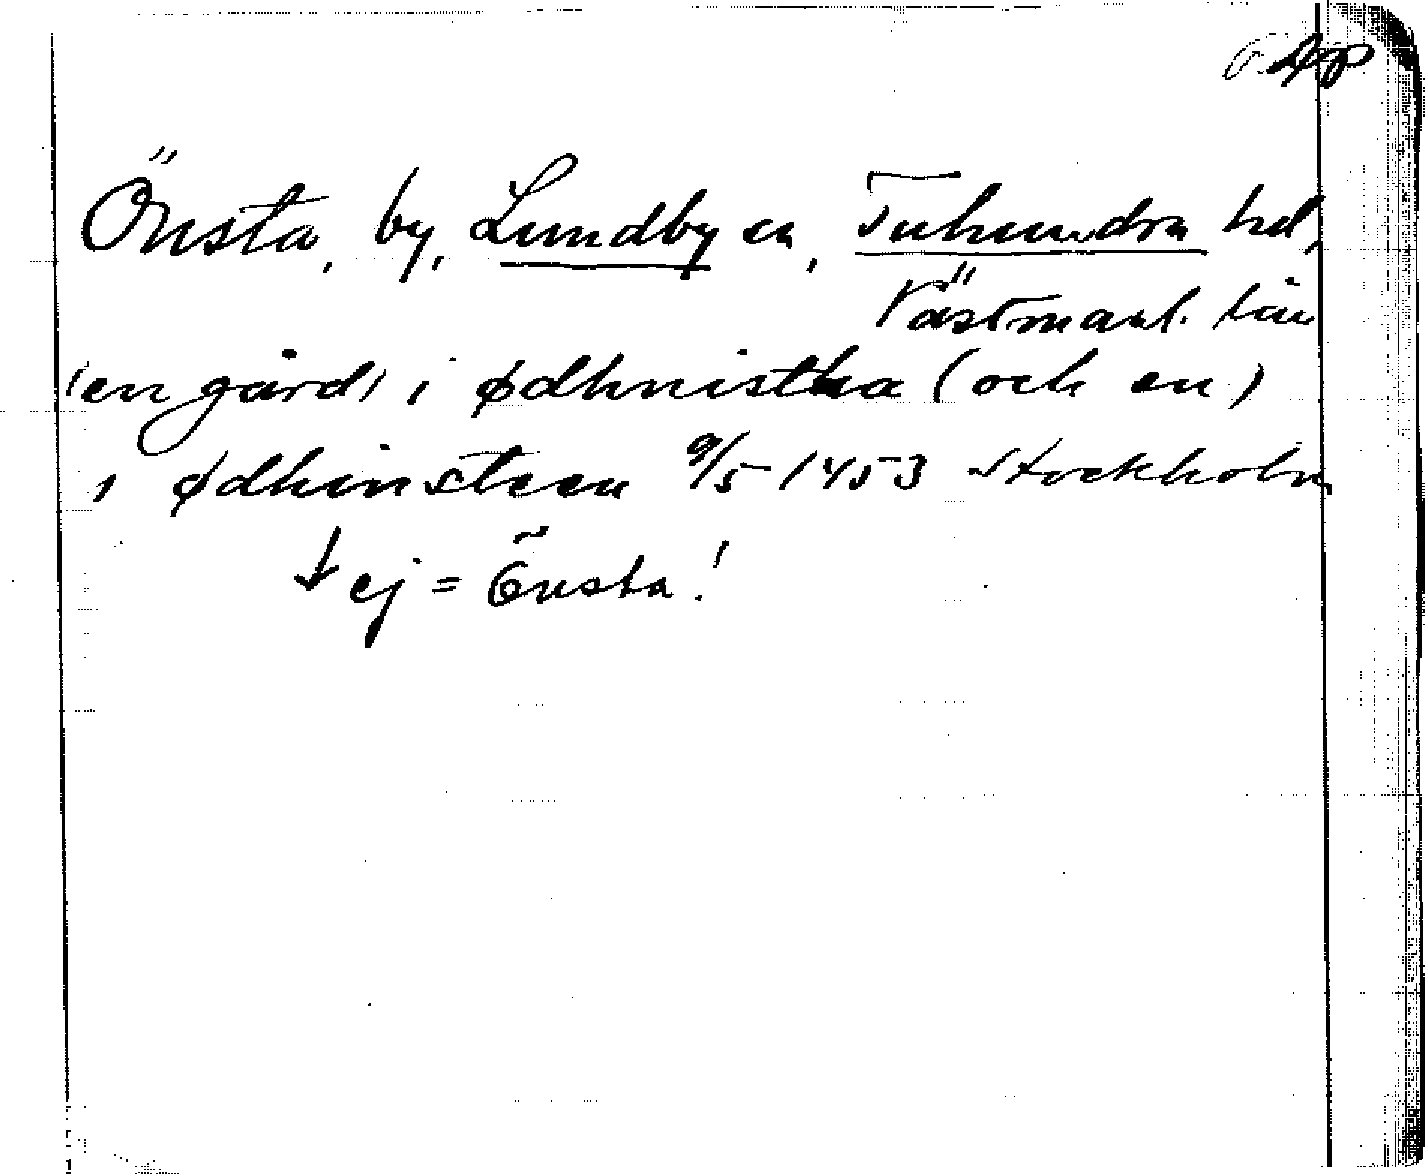 Önsta, by, Lundby sn, Tuhundra hd,
Västmanl. län
(en gård) i ødhnistha (och en)
i ødhinsteen 9/5 1453 Stockholm
ej = Önsta!